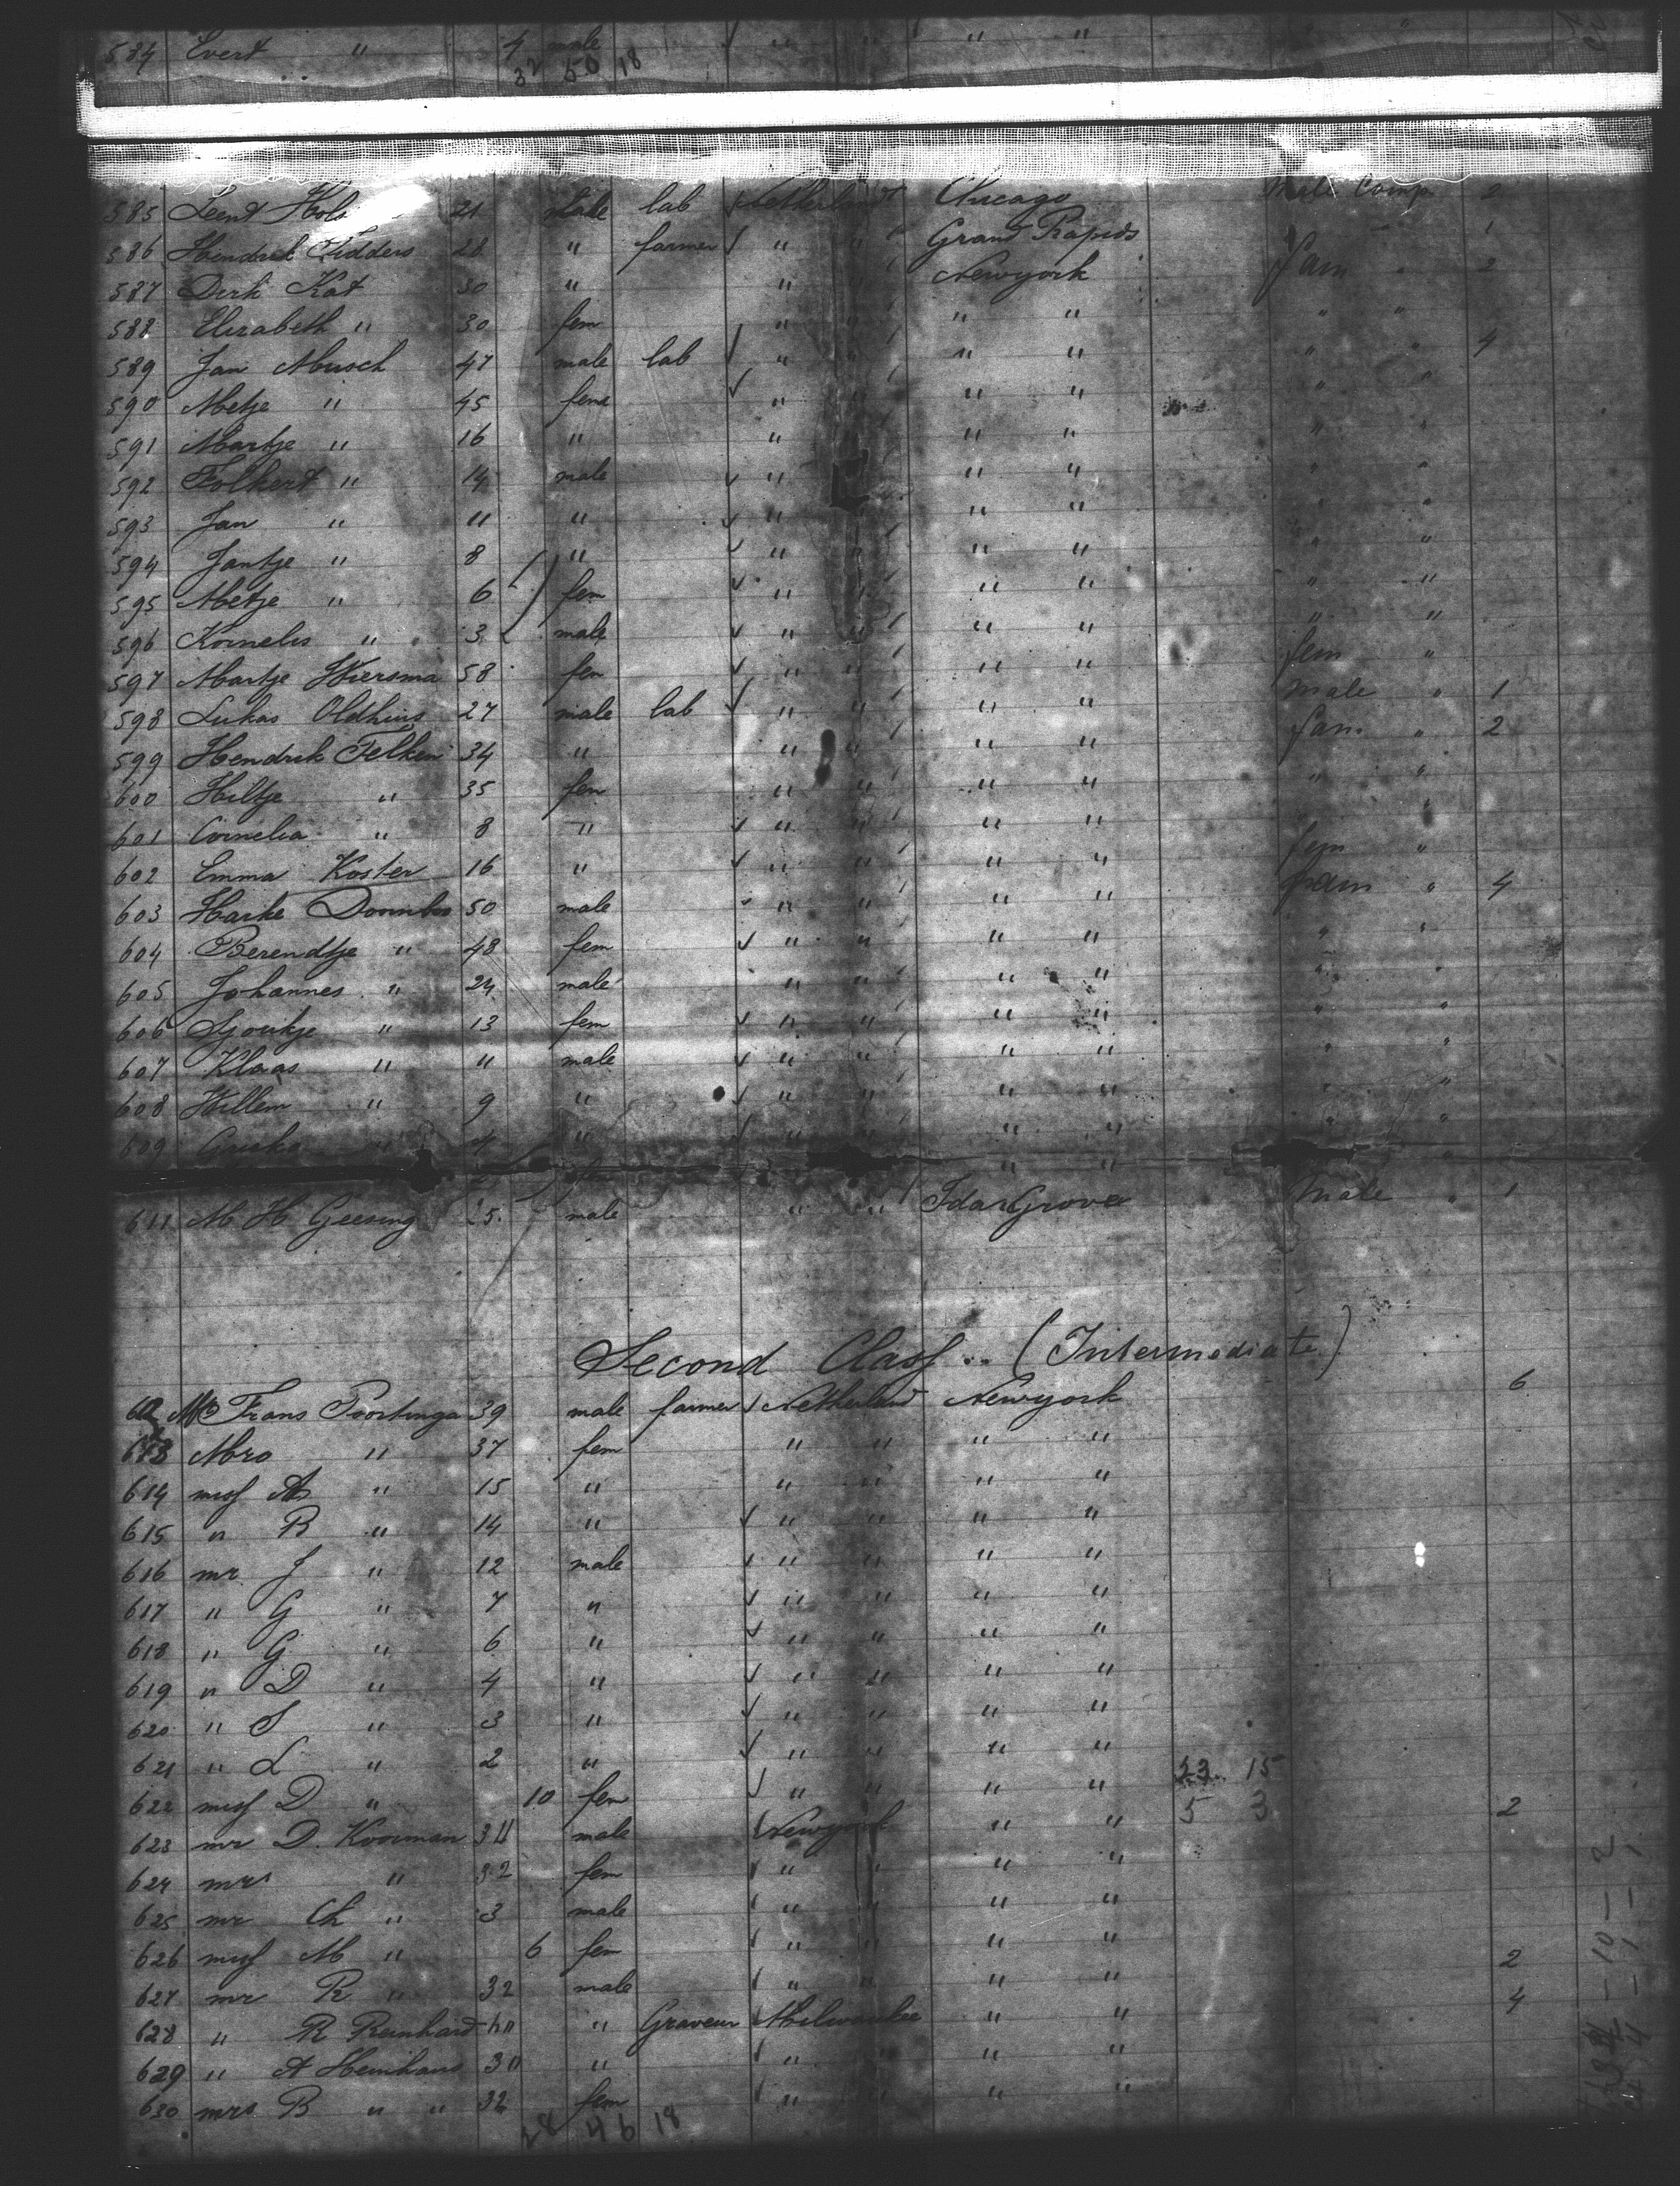 584 Evert " 4 male " " " "
32 50 18
585 Leent Hols 21 male lab Netherland Chicago Male Comp 2
586 Hendrik Fidders 28 " farmer " " Grand Rapids " 1
587 Dirk Kat 30 " " " Newyork Fam " 2
588 Elizabeth " 30 fem " " " " " "
589 Jan Musch 47 male lab " " " " " " 4
590 Metje " 45 fem " " " " " "
591 Martje " 16 " " " " " " "
592 Folkert " 14 male " " " " " "
593 Jan " 11 " " " " " " "
594 Jantje " 8 " " " " " " "
595 Metje " 6 fem " " " " " "
596 Kornelis " 3 male " " " " " "
597 Martje Wiersma 58 fem " " " " fem "
598 Lukas Oldhuis 27 male lab " " " " male " 1
599 Hendrik Felken 34 " " " " " fam " 2
600 Hiltje " 35 fem " " " " " "
601 Cornelia " 8 " " " " " "
602 Emma Koster 16 " " " " " fem "
603 Harke 50 male " " " " fam " 4
604 Berendtje " 48 fem " " " " " "
605 Johannes " 24 male " " " " " "
606 Sjoukje " 13 fem " " " " " "
607 Klaas " 11 male " " " " " "
608 Willem " 9 " " " " " " "
609 " 4 " " " " " " "
fem " "
611 M H Geesing male " " Ida Grove Male " 1
Second Class .. (Intermediate)
612 Mr Frans Poortinga 39 male farmer Netherland Newyork 6
613 Mrs " 37 fem " " " "
614 miss As " 15 " " " " "
615 " B " 14 " " " " "
616 mr J " 12 male " " " "
617 " G " 7 " " " " "
618 " G " 6 " " " " "
619 " D " 4 " " " " "
620 " S " 3 " " " " "
621 " L " 2 " " " " "
23 15
622 miss D " 10 fem " " " "
5 3
623 mr D. Kooiman 34 male Newyork " " 2
624 mrs " 32 fem " " " "
625 mr Ch " 3 male " " " "
626 miss M " 6 fem " " " "
627 mr R " 32 male " " " " 2
628 " R Reinhard 40 " Graveur Milwaukee " " 4
629 " A Heinhaus 30 " " " " "
630 mrs B " " 32 fem " " "
28 46 18